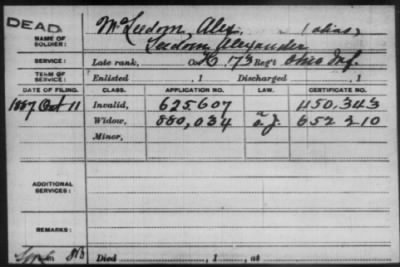 DEAD
NAME OF SOLDIER: McLudom, Alex. (alias)
Ludom, Alexander
SERVICE: Late rank, Co. H, 173 Reg't Ohio Inf.
TERM OF SERVICE: Enlisted , 1 Discharged , 1
DATE OF FILING. CLASS. APPLICATION NO. LAW. CERTIFICATE NO.
1887 Oct 11 Invalid, 625,607 450,343
Widow, 880,034 a. g. 652 210
Minor,
ADDITIONAL SERVICES:
REMARKS:
Died , 1 , at